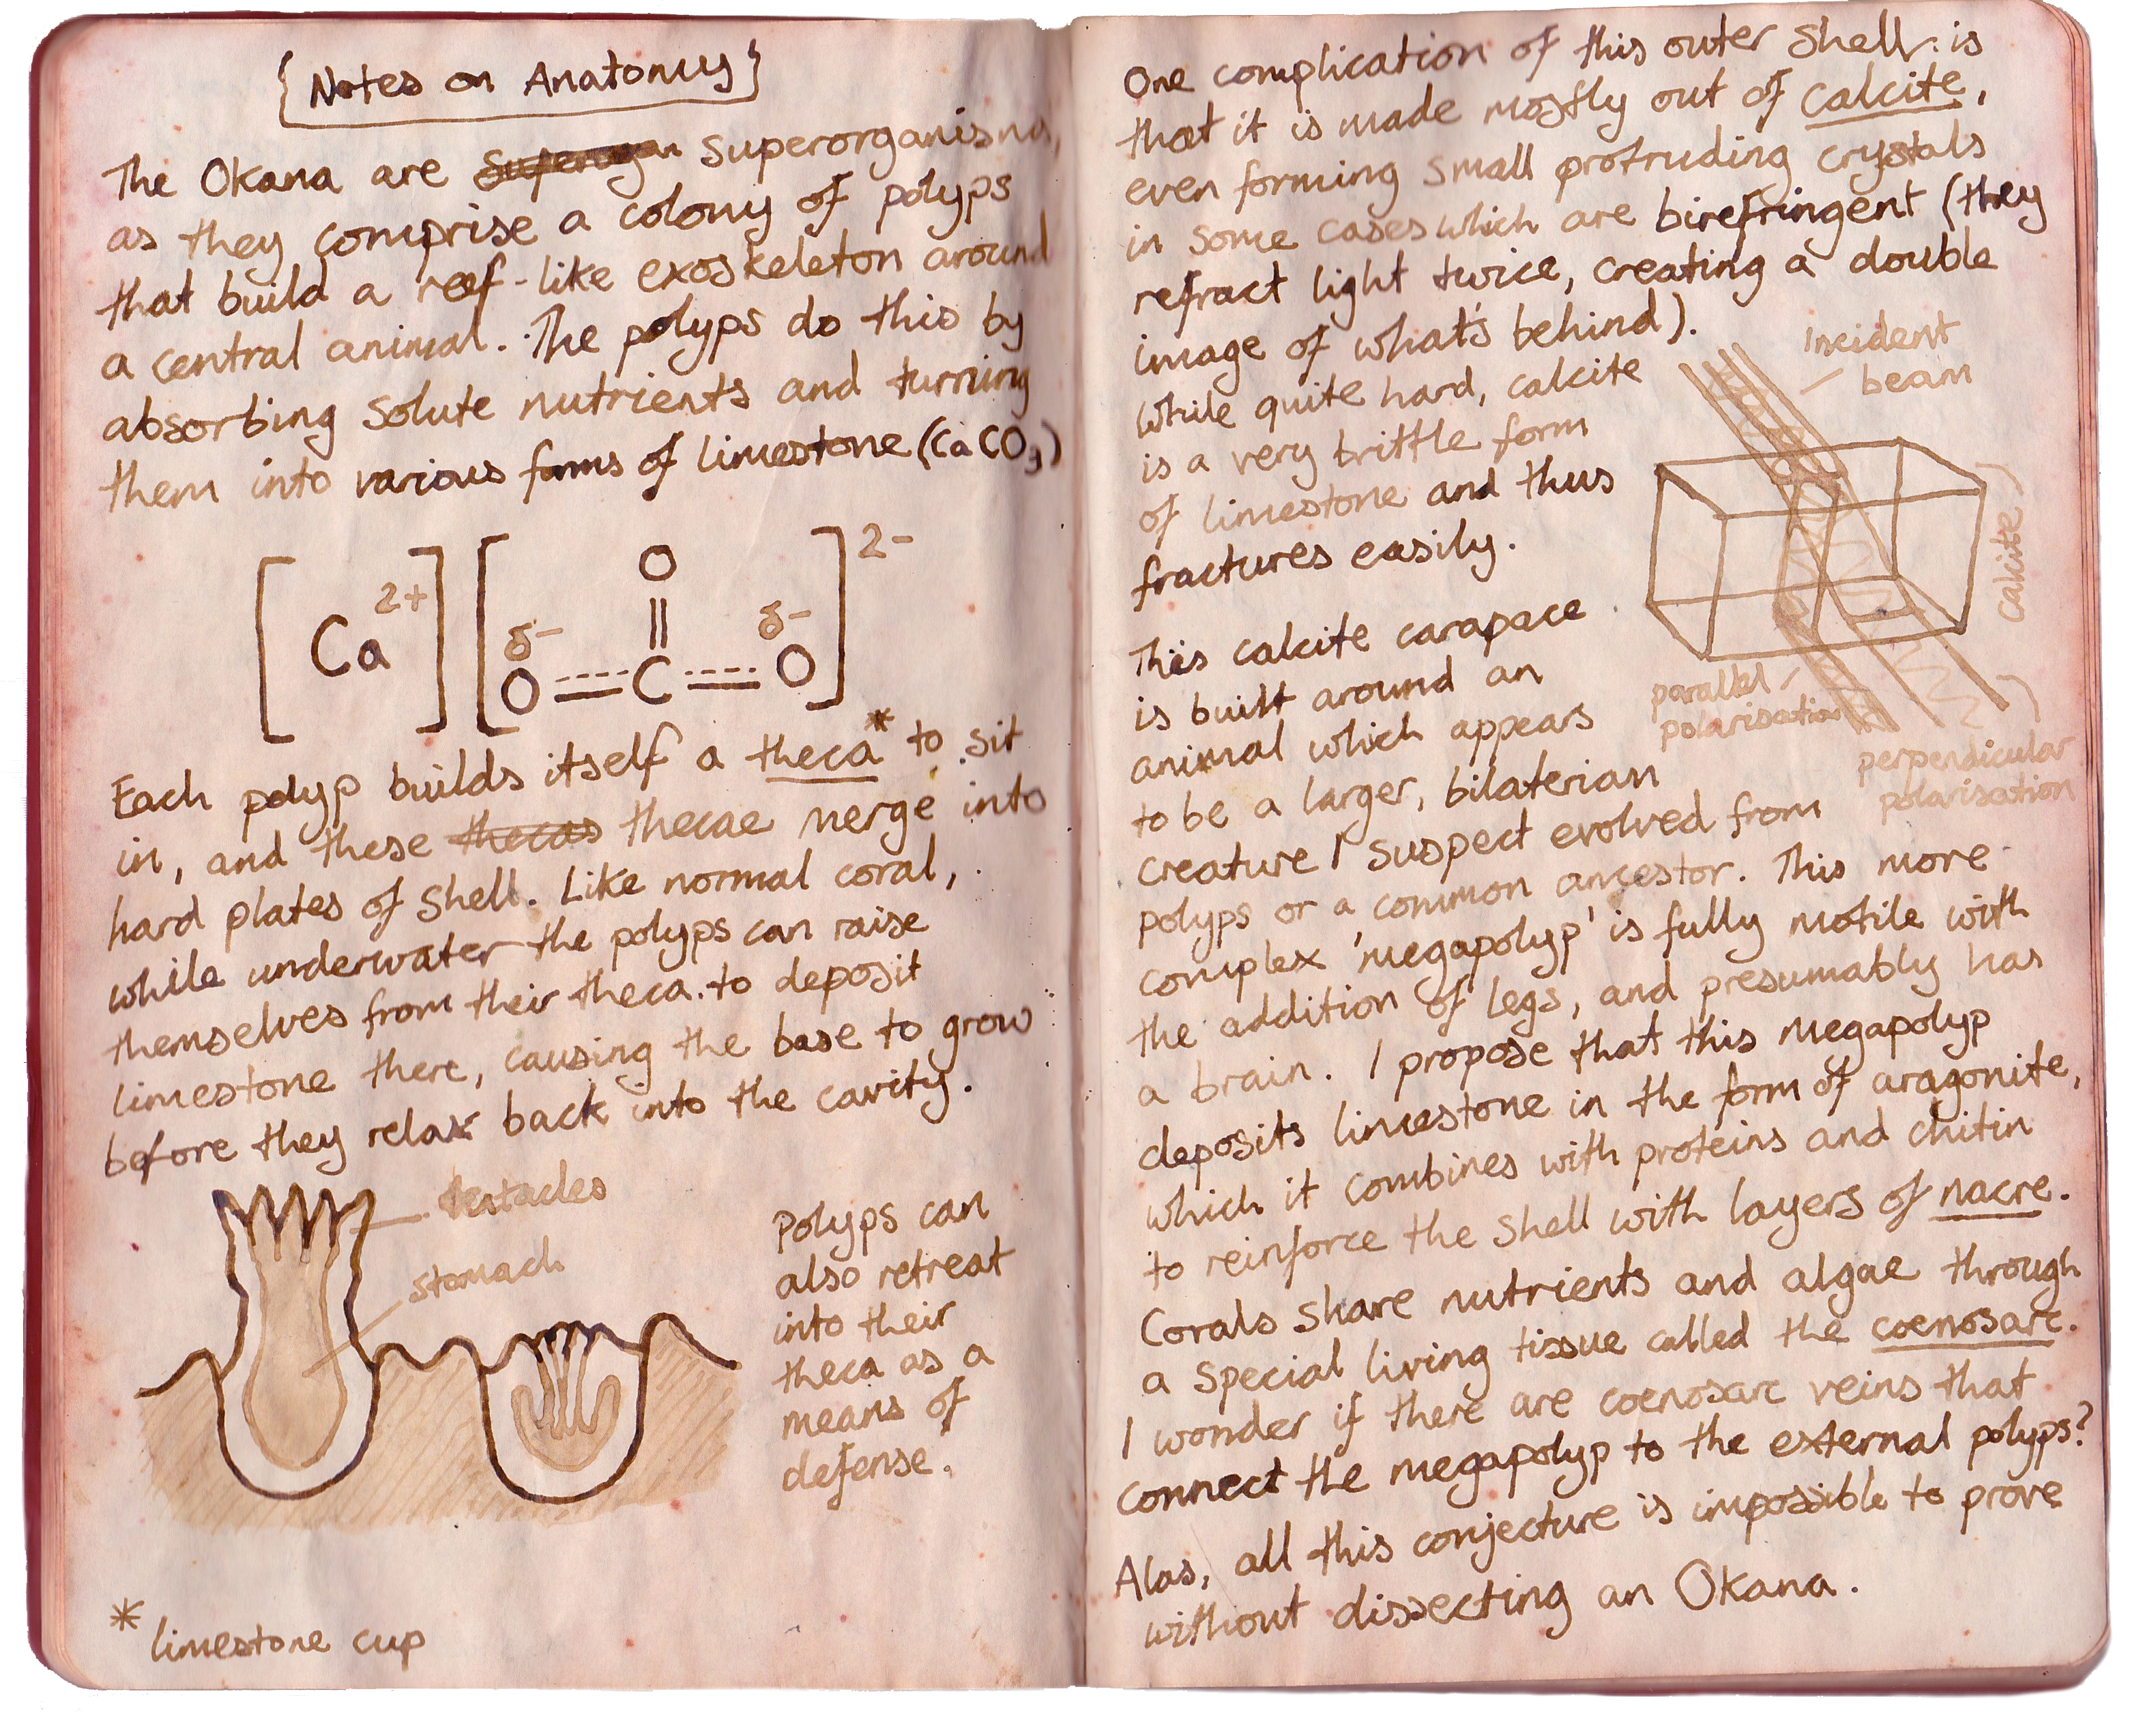 {Notes on Anatomy}
The Okana are Superorgan superorganisms,
as they comprise a colony of polyps
that build a reef-like exoskeleton around
a central animal. The polyps do this by
absorbing solute nutrients and turning
them into various forms of limestone (CaCO3)
[Ca 2+] [O δ- C O O δ-] 2-
Each polyp builds itself a theca* to sit
in, and these thecas thecae merge into
hard plates of shell. Like normal coral,
while underwater the polyps can raise
themselves from their theca to deposit
limestone there, causing the base to grow
before they relax back into the cavity.
tentacles
stomach
Polyps can
also retreat
into their
theca as a
means of
defense.
* limestone cup
One complication of this outer shell is
that it is made mostly out of calcite,
even forming small protruding crystals
in some cases which are birefringent (they
refract light twice, creating a double
image of what's behind).
While quite hard, calcite
is a very brittle form
of limestone and thus
fractures easily.
incident
beam
calcite
parallel
polarisation
perpendicular
polarisation
This calcite carapace
is built around an
animal which appears
to be a larger, bilaterian
creature I suspect evolved from
polyps or a common ancestor. This more
complex 'megapolyp' is fully motile with
the addition of legs, and presumably has
a brain. I propose that this megapolyp
deposits limestone in the form of aragonite,
which it combines with proteins and chitin
to reinforce the shell with layers of nacre.
Corals share nutrients and algae through
a special living tissue called the coenosarc.
I wonder if there are coenosarc veins that
connect the megapolyp to the external polyps?
Alas, all this conjecture is impossible to prove
without dissecting an Okana.